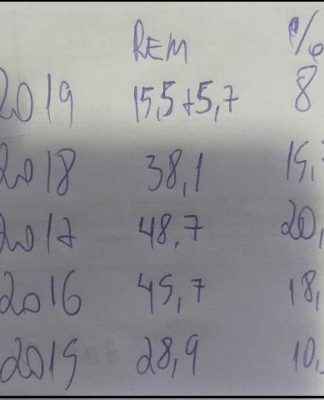 REM %
2019 15,5+5,7 8
2018 38,1 15,
2017 48,7 20,
2016 45,7 18,
2015 28,9 10,